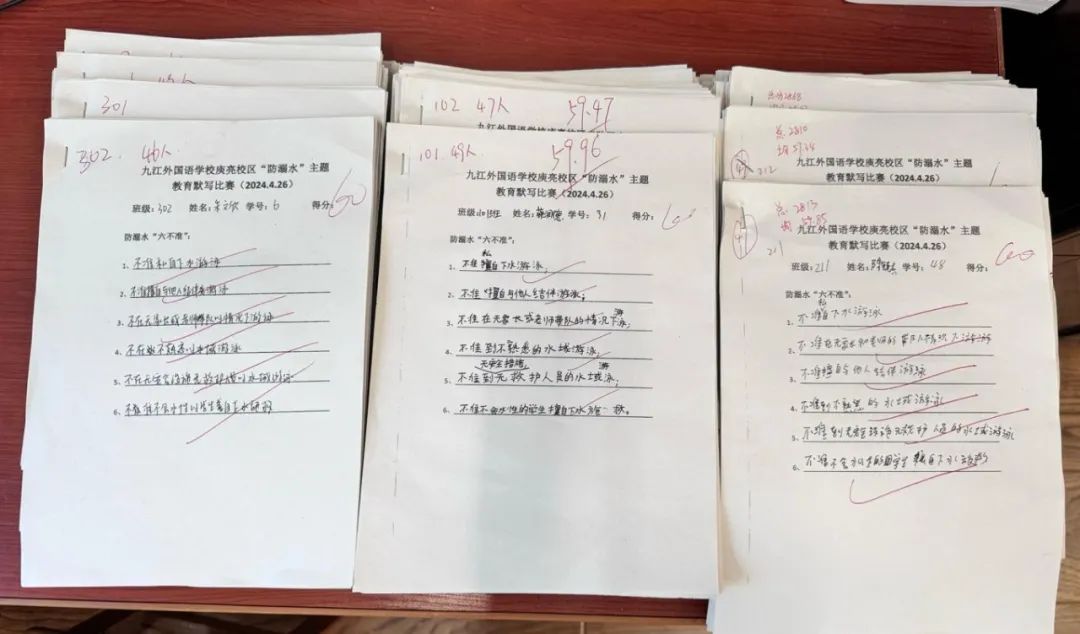 301
302. 46人
九江外国语学校庾亮校区“防溺水”主题
教育默写比赛（2024.4.26）
班级：302 姓名： 学号：6 得分：60
防溺水“六不准”：
1、不准私自下水游泳
2、不准擅自与他人结伴游泳
3、不在无家长或老师带队的情况下游泳
4、不在不熟悉的水域游泳
5、不在无安全设施无救护人员的水域游泳
6、不准不会水性的学生擅自下水施救
102 47人 59.47
九江外国语学校庾亮校区
101. 49人. 59.96
九江外国语学校庾亮校区“防溺水”主题
教育默写比赛（2024.4.26）
班级：101班 姓名： 学号：31 得分：60
防溺水“六不准”：
1、不准私自下水游泳，
2、不准擅自与他人结伴游泳；
3、不准在无家长或老师带队的情况下游泳；
4、不准到不熟悉的水域游泳，
5、不准到无安全措施，无救护人员的水域游泳，
6、不准不会水性的学生擅自下水施救。
总分2868
总. 2810
212
九江外国语学校庾亮校区“防溺水”主题
教育默写比赛（2024.4.26）
总. 2813
均
211
九江外国语学校庾亮校区“防溺水”主题
教育默写比赛（2024.4.26）
班级：211 姓名： 学号：48 得分：60
防溺水“六不准”：
1、不准私自下水游泳
2、不准在无家长和老师的带队情况下游泳
3、不准擅自与他人结伴游泳
4、不准到不熟悉的水域游泳
5、不准到无安全设施无救护人员的水域游泳
6、不准不会水性的学生擅自下水施救